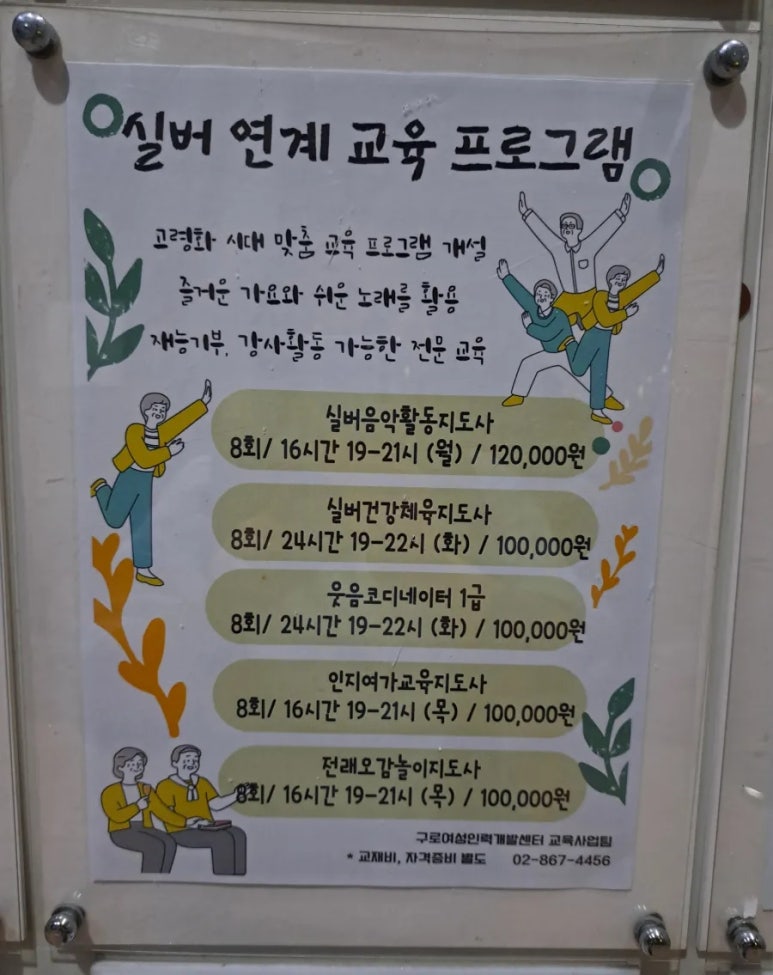 실버 연계 교육 프로그램
고령화 시대 맞춤 교육 프로그램 개설
즐거운 가요와 쉬운 노래를 활용
재능기부, 강사활동 가능한 전문 교육
실버음악활동지도사
8회/ 16시간 19-21시 (월) / 120,000원
실버건강체육지도사
8회/ 24시간 19-22시 (화) / 100,000원
웃음코디네이터 1급
8회/ 24시간 19-22시 (화) / 100,000원
인지여가교육지도사
8회/ 16시간 19-21시 (목) / 100,000원
전래오감놀이지도사
8회/ 16시간 19-21시 (목) / 100,000원
구로여성인력개발센터 교육사업팀
* 교재비, 자격증비 별도 02-867-4456